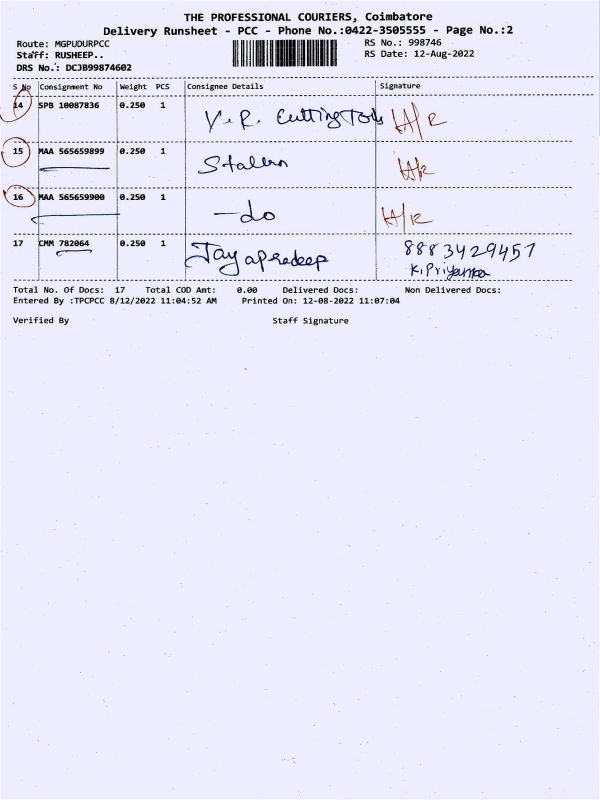 THE PROFESSIONAL COURIERS, Coimbatore
Delivery Runsheet - PCC - Phone No.:0422-3505555 - Page No.:2
Route: MGPUDURPCC RS No.: 998746
Staff: RUSHEEP.. RS Date: 12-Aug-2022
DRS No.: DCJB99874602
S No Consignment No Weight PCS Consignee Details Signature
14 SPB 10087836 0.250 1 V.R. Cutting Tools
15 MAA 565659899 0.250 1 Stalern
16 MAA 565659900 0.250 1 —do
17 CMM 782064 0.250 1 Jayapradeep 8883429457
K.Priyanka
Total No. Of Docs: 17 Total COD Amt: 0.00 Delivered Docs: Non Delivered Docs:
Entered By :TPCPCC 8/12/2022 11:04:52 AM Printed On: 12-08-2022 11:07:04
Verified By Staff Signature